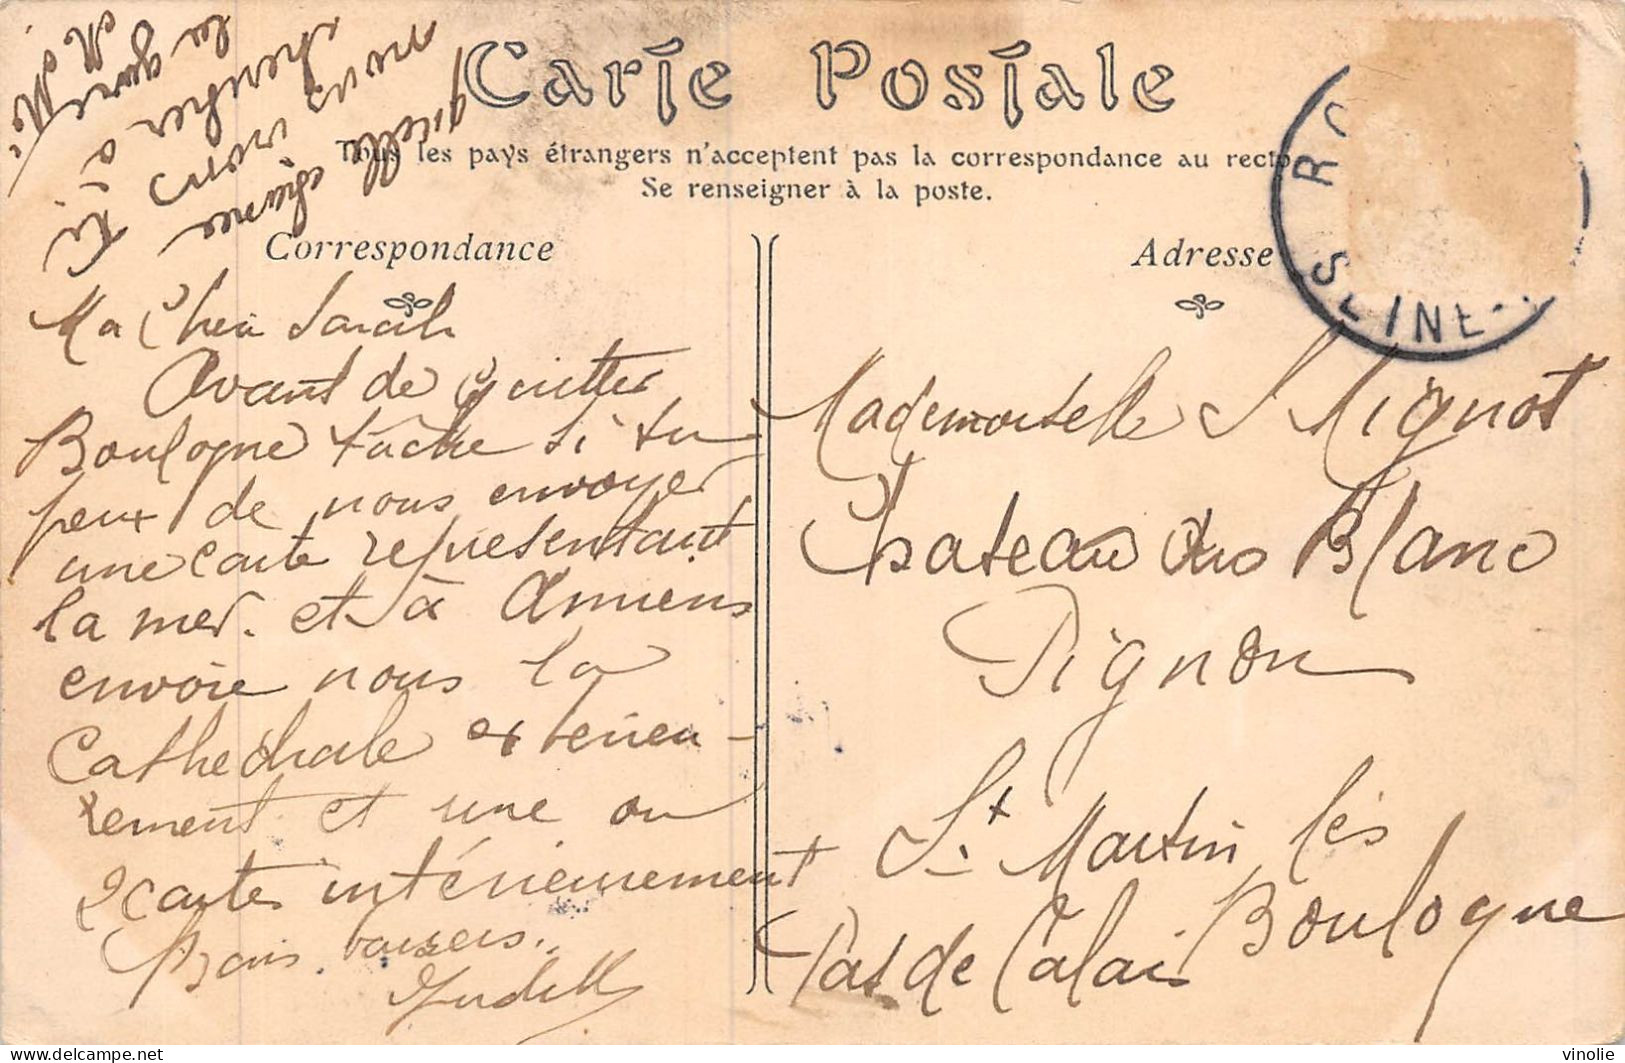 Carte Postale
Tous les pays étrangers n'acceptent pas la correspondance au recto
Se renseigner à la poste.
Correspondance
Adresse
nous irons
chercher à
la gare
Ma Cheri Sarah
Avant de Quitter
Boulogne tâche si tu
peux de nous envoyer
une carte representant
la mer. et à Amiens
envoie nous la
Cathedrale exterieu-
rement et une ou
2 cartes intérieurement
Bons baisers.
Judith
SEINE
Mademoiselle S Mignot
Chateau du Blanc
Pignon
St Martin lès
Boulogne
Pas de Calais
vinolie